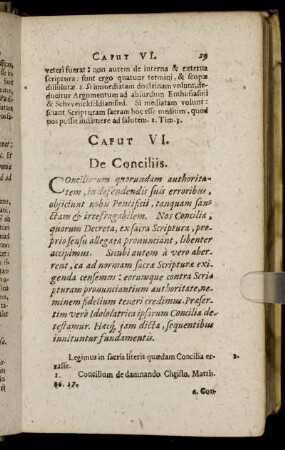 CAPUT VI. 29
veteri fuerat: non autem de interna & externa
scriptura: sunt ergo quatuor termini, & scopæ
dissolutæ. 2. Si immediatam doctrinam volunt, de-
ducitur Argumentum ad absurdum Enthusiasmi
& Schvvenckfeldianismi. Si mediatam volunt:
sciant, Scripturam sacram hoc esse medium, quod
nos possit instituere ad salutem. 2. Tim. 3.
CAPUT VI.
De Conciliis.
Conciliorum quorundam authorita-
tem, in defendendis suis erroribus,
objiciunt nobis Pontificii, tanquam san-
ctam & irrefragabilem. Nos Concilia,
quorum Decreta, ex sacra Scriptura, pro-
prio sensu allegata pronunciant, libenter
accipimus. Sicubi autem à vero aber-
rent, ea ad normam sacræ Scripturæ exi-
genda censemus: eorumque contra Scri-
pturam pronunciantium authoritate, ne-
minem fidelium teneri credimus. Præser-
tim verò Idololatrica ipsorum Concilia de-
testamur. Hæcq; jam dicta, sequentibus
innituntur fundamentis.
Legimus in sacris literis quædam Concilia er- 2.
rasse.
1. Concilium de damnando Christo. Matth.
26. 27.
2. Con-